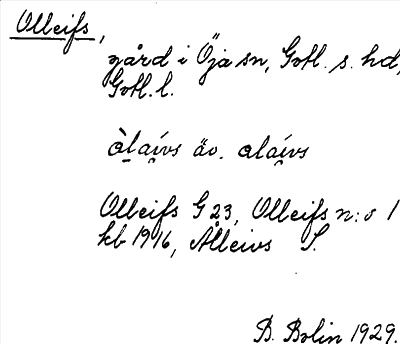 Olleifs,
gård i Öja sn, Gotl. s. hd,
Gotl. l.
òlaívs äv. alaívs
Olleifs G 23, Olleifs n:o 1
kb 1916, Ålleivs S.
B. Bolin 1929.